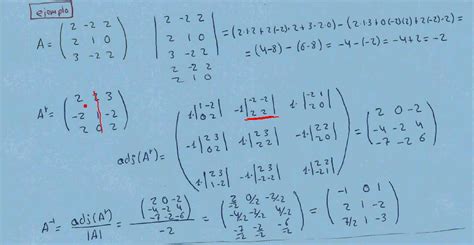 ejemplo
A = ( 2 -2 2 ; 2 1 0 ; 3 -2 2 ) | 2 -2 2 ; 2 1 0 ; 3 -2 2 ; 2 -2 2 ; 2 1 0 | = (2·1·2+2·(-2)·2+3·2·0) - (2·1·3+0·(-2)·2+2·(-2)·2) =
= (4-8) - (6-8) = -4-(-2) = -4+2 = -2
Aᵗ = ( 2 2 3 ; -2 1 -2 ; 2 0 2 )
adj(Aᵗ) = ( 1·|1 -2 ; 0 2| -1·|-2 -2 ; 2 2| 1·|-2 1 ; 2 0| ; -1·|2 3 ; 0 2| 1·|2 3 ; 2 2| -1·|2 2 ; 2 0| ; 1·|2 3 ; 1 -2| -1·|2 3 ; -2 -2| 1·|2 2 ; -2 1| ) = ( 2 0 -2 ; -4 -2 4 ; -7 -2 6 )
A⁻¹ = adj(Aᵗ) / |A| = ( 2 0 -2 ; -4 -2 4 ; -7 -2 6 ) / -2 = ( 2/-2 0/-2 -2/-2 ; -4/-2 -2/-2 4/-2 ; -7/-2 -2/-2 6/-2 ) = ( -1 0 1 ; 2 1 -2 ; 7/2 1 -3 )